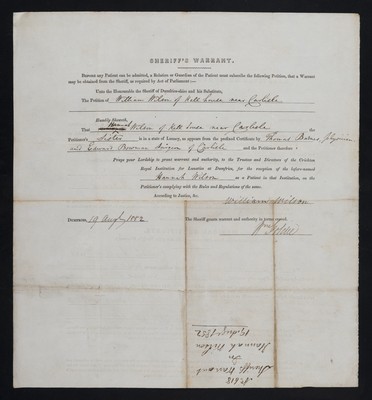 SHERIFF'S WARRANT.
BEFORE any Patient can be admitted, a Relation or Guardian of the Patient must subscribe the following Petition, that a Warrant
may be obtained from the Sheriff, as required by Act of Parliament :—
Unto the Honourable the Sheriff of Dumfries-shire and his Substitute,
The Petition of William Wilson of Kell house near Carlisle
Humbly sheweth,
That Hannah Wilson of Kell house near Carlisle the
Petitioner's Sister is in a state of Lunacy, as appears from the prefixed Certificate by Thomas Barnes physician
and Edward Bowman Surgeon of Carlisle and the Petitioner therefore
Prays your Lordship to grant warrant and authority, to the Trustees and Directors of the Crichton
Royal Institution for Lunatics at Dumfries, for the reception of the before-named
Hannah Wilson as a Patient in that Institution, on the
Petitioner's complying with the Rules and Regulations of the same.
According to Justice, &c.
William Wilson
DUMFRIES, 19 Augt 1852 The Sheriff grants warrant and authority as above craved.
No 618
Sheriff's Warrant
Hannah Wilson
1852